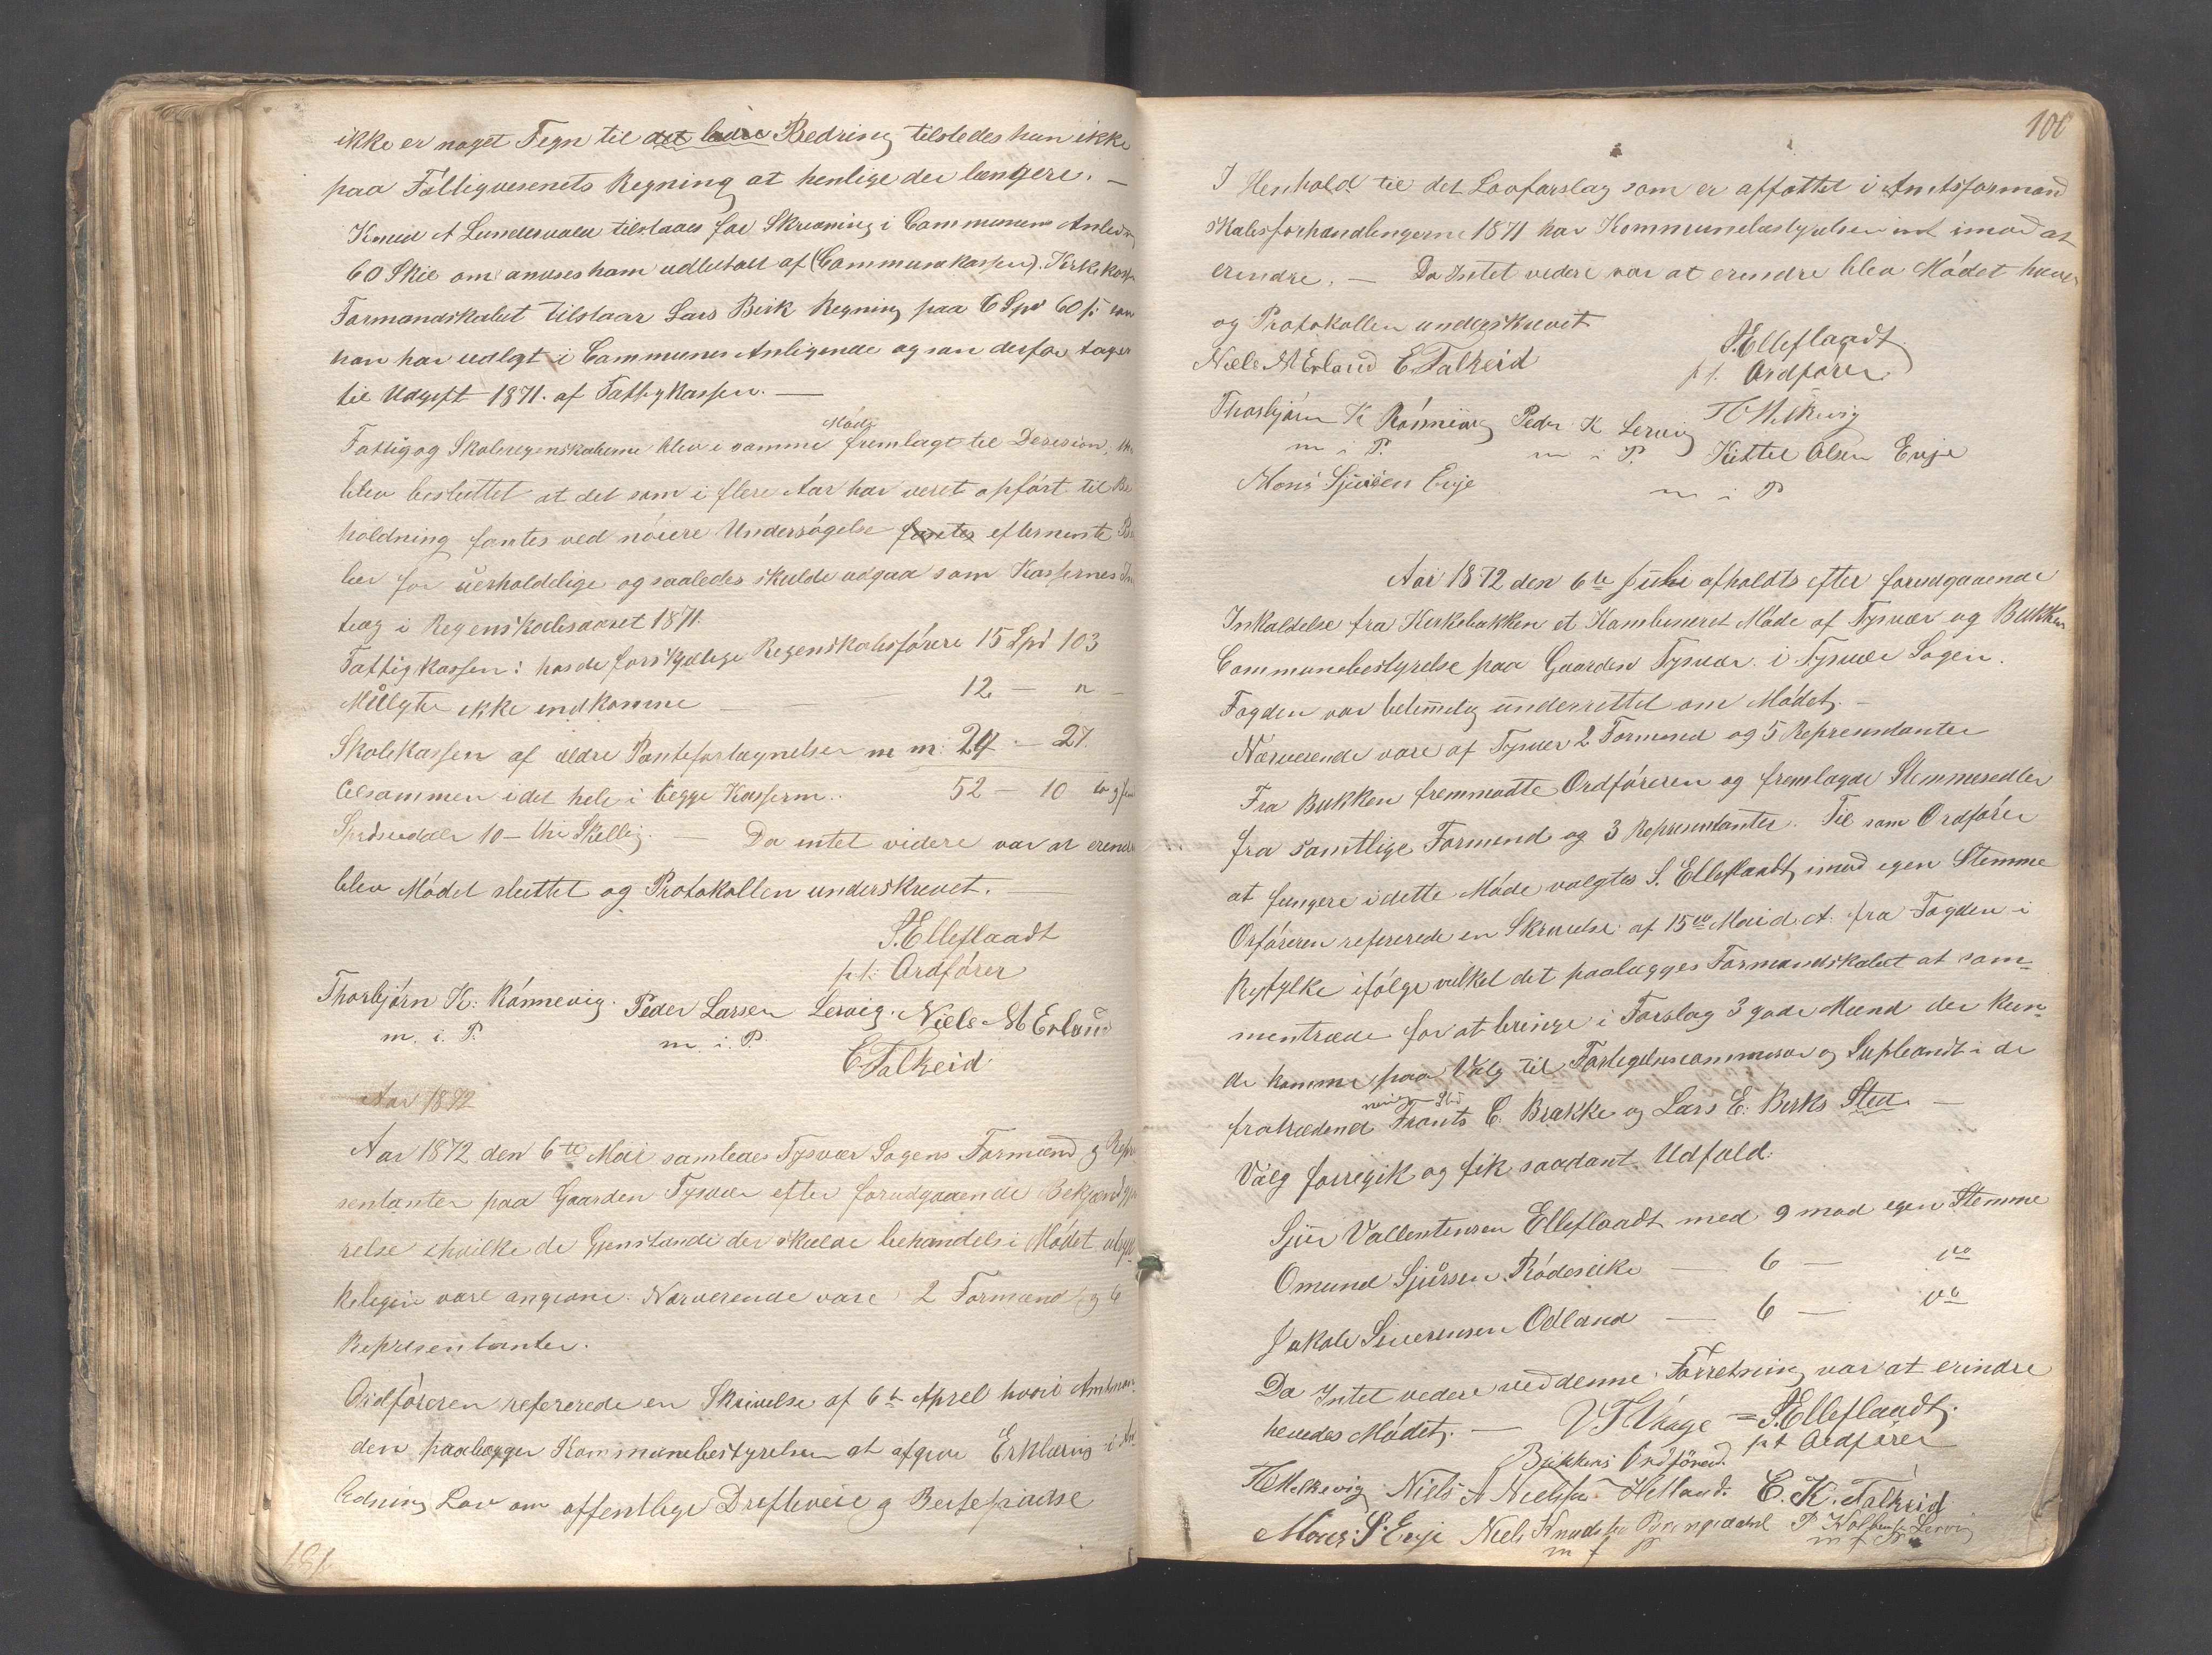 ikke er noget Tegn til det bedre Bedring tilstedes hun ikke
paa Fattigvesenets Regning at henlige der længere. —
Knud A Lundesvold tilstaaes for Skrivning i Communens Anledn
60 Skil om anvises ham udbetalt af (Communekassen). Kirkekassen
Formandskabet tilstaar Lars Birk Regning paa 6 Spd 60 s som
han har udlagt i Communens Anligende og som derfor tages
til Udgift 1871. af Fattigkassen. —
Møde
Fattig og Skoleregnskaberne blev i samme fremlagt til Decision,
blev besluttet at det som i flere Aar har veret opført til Be
holdning fantes ved nøiere Undersøgelse fantes efternevnte Be
løb for uerholdelige og saaledes skulde udgaa som Kassernes
tag i Regenskabsaaret 1871.
Fattigkassen: hos de forskjælige Regenskabsførere 15 Spd 103
Mulgter ikke indkomne — 12 — " —
Skolekassen af ældre Panteforlægnelser m m: 24 — 27
Alsammen i det hele i begge Kasserne. 52 — 10 to og femti
Spesiedaler 10 — thi Skelling. — Da intet videre var at erindre
blev Mødet sluttet og Protokollen underskrevet.
S. Elleflaadt
p.t. Ordfører
Thorbjørn K: Rønnevig. Peder Larsen Lervig. Niels M Erland
m. i. P. m. i. P.
E Falkeid
Aar 1872
Aar 1872 den 6te Mai samledes Tysvær Sogens Formænd og Repre
sentanter paa Gaarden Tysvær efter forudgaaende Bekjendtgjø
relse i hvilke de Gjenstande der skulde behandels i Mødet
keligen vare angivne. Nærverende vare 2 Formænd og 6
Representanter.
Ordføreren refererede en Skrivelse af 6te Aprel hvori Amtman
den paalægger Kommunebestyrelsen at afgive Erklæring i An
ledning Lov om offentlige Drifteveie og Beite
181
100
I Henhold til det Lovforslag som er affattet i Amtsformand
skabsforhandlingerne 1871 har Kommunebestyrelsen int imod at
erindre. — Da Intet videre var at erindre blev Mødet hæve
og Protokollen underskrevet
Niels M Erland E. Falkeid S. Elleflaadt
p t. Ordfører
Thorbjørn K Rønnevig Peder K Lervig T O Melkevig
m i P. m i P. Kittel Olsen Erje
Mons Sjursen Erje m i P
Aar 1872 den 6te Juli afholdts efter forudgaaende
Inkaldelse fra Kirkebakken et Kombineret Møde af Tysvær og Bukken
Communebestyrelse paa Gaarden Tysvær i Tysvær Sogen.
Fogden var betimelig underrettet om Mødet. —
Nærverende vare af Tysvær 2 Formend og 5 Representanter
Fra Bukken fremmødte Ordføreren og fremlagde Stemmesedler
fra samtlige Formend og 3 Representanter. Til som Ordfører
at fungere i dette Møde valgtes S. Elleflaadt imod egen Stemme
Orføreren refererede en Skrivelse af 15de Mai d. A. fra Fogden i
Ryfylke ifølge vilket det paalægges Formandskabet at sam-
mentræde for at bringe i Forslag 3 gode Mænd der kun-
de komme paa Valg til Forligelsescommisær og Supleandt i de
fratrædende Frants C. Brakke og Lars E. Birks Sted —
Valg forregik og fik saadant Udfald:
Sjur Vallentinsen Elleflaadt med 9 mod egen Stemme
Omund Sjursen Rødeseike — 6 — do
Jakob Severensen Odland — 6 — do
Da Intet vedere ved denne Forretning var at erindre
hevedes Mødet. — V T Vaage = S. Elleflaadt.
Bukkens Ordfører. p t Ordfører
T O Melkevig Niels A Nielsen Hetland. E. K. Falkeid
Mons. S. Erje Niels Knudsen P Kolbensen Lervig
m f P m f P